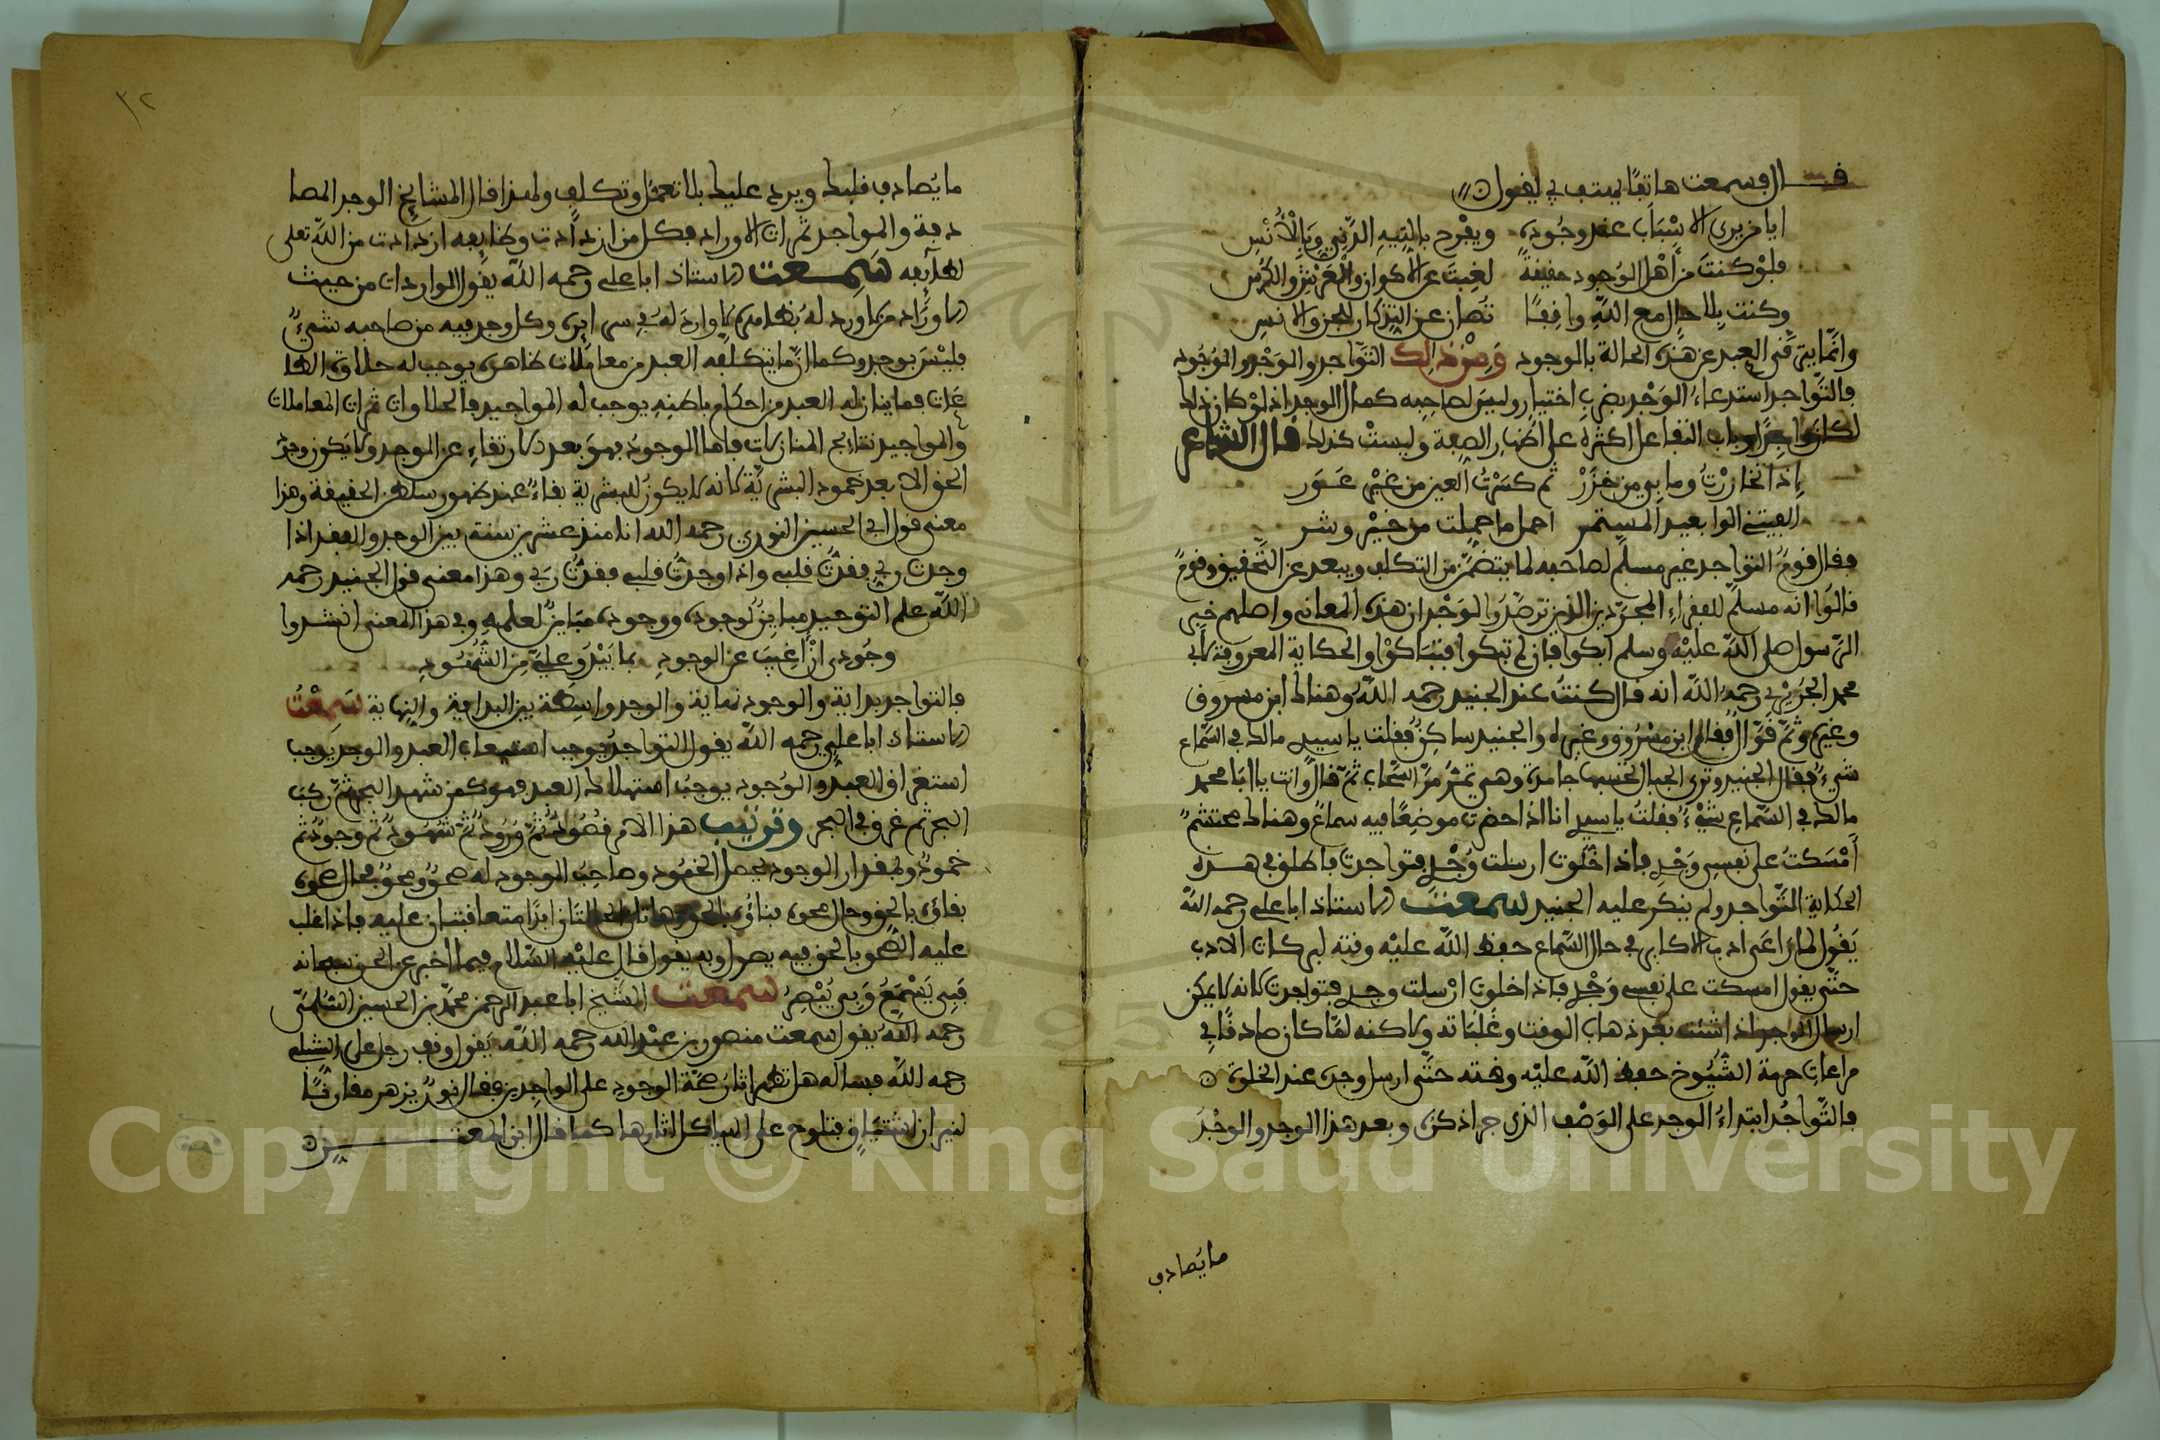 قال فسمعت هاتفا يهتف بي يقول
ايا من يرى الاسباب عند وجوده ويفرح بالتيه الدني وبالانس
فلو كنت من اهل الوجود حقيقة لغبت عن الاكوان والعرش والكرسي
وكنت بلا حال مع الله واقفا تصان عن التذكار للجن والانس
وانما يترقى العبد عن هذه الحالة بالوجود ومن ذلك التواجد والوجد والوجود
فالتواجد استدعاء الوجد بضرب اختيار وليس لصاحبه كمال الوجد اذ لو كان ذلك
لكان واجدا وباب التفاعل اكثره على اظهار الصفة وليست كذلك قال الشاعر
اذا تخازرت وما بي من خزر ثم كسرت العين من غير عور
الفيتني الوا بعيد المستمر احمل ما حملت من خير وشر
فقال قوم التواجد غير مسلم لصاحبه لما يتضمن من التكلف ويبعد عن التحقيق وقوم
قالوا انه مسلم للفقراء المجردين الذين ترصدوا لوجدان هذه المعاني واصلهم خبر
الرسول صلى الله عليه وسلم ابكوا فان لم تبكوا فتباكوا والحكاية المعروفة لابي
محمد الجريري رحمه الله انه قال كنت عند الجنيد رحمه الله وهناك ابن مسروق
وغيرهم وثم قوال فقام ابن مسروق وغيره والجنيد ساكن فقلت يا سيدي مالك في السماع
شيء فقال الجنيد وترى الجبال تحسبها جامدة وهي تمر مر السحاب ثم قال وانت يا ابا محمد
مالك في السماع شيء فقلت يا سيدي انا اذا حضرت موضعا فيه سماع وهناك محتشم
امسكت على نفسي وجدي فاذا خلوت ارسلت وجدي فتواجدت فاطلق في هذه
الحكاية التواجد ولم ينكر عليه الجنيد سمعت الاستاذ ابا علي رحمه الله
يقول لما راعى ادب الاكابر في حال السماع حفظ الله عليه وقته لبركات الادب
حتى يقول امسكت على نفسي وجدي فاذا خلوت ارسلت وجدي فتواجدت لانه لا يمكن
ارسال الوجد اذا شئت بعد ذهاب الوقت وغلباته ولاكنه لما كان صادقا في
مراعات حرمة الشيوخ حفظ الله عليه وقته حتى ارسل وجده عند الخلوة
فالتواجد ابتداء الوجد على الوصف الذي جرا ذكره وبعد هذا الوجد والوجد
ما يصادف
٣٢
ما يصادف قلبك ويرد عليك بلا تعمل وتكلف ولهذا قال المشايخ الوجد المصا
دفة والمواجد ثمرات الاوراد فكل من ازدادت وظايفه ازدادت من الله تعلى
لطايفه سمعت الاستاذ ابا علي رحمه الله يقول الواردات من حيث
الاوراد من لا ورد له بظاهره لا وارد له في سرايره وكل وجد فيه من صاحبه شيء
فليس بوجد وكما ان ما يتكلفه العبد من معاملات ظاهره يوجب له حلاوة الطا
عات فما ينازله العبد من احكام باطنه يوجب له المواجيد فالحلاوات ثمرات المعاملات
والمواجيد نتايج المنازلات فاما الوجود فهو بعد الارتقاء عن الوجد ولا يكون وجود
الحق الا بعد خمود البشرية لانه لا يكون للبشرية بقاء عند ظهور سلطن الحقيقة وهذا
معنى قول ابي الحسين النوري رحمه الله انا منذ عشرين سنة بين الوجد والفقد اذا
وجدت ربي فقدت قلبي واذا وجدت قلبي فقدت ربي وهذا معنى قول الجنيد رحمه
الله علم التوحيد مباين لوجوده ووجوده مباين لعلمه وفي هذا المعنى انشدوا
وجودي ان اغيب عن الوجود بما يبدو علي من الشهود
فالتواجد بداية والوجود نهاية والوجد واسطة بين البداية والنهاية سمعت
الاستاذ ابا علي رحمه الله يقول التواجد يوجب استيعاب العبد والوجد يوجب
استغراق العبد والوجود يوجب استهلاك العبد فهو كمن شهد البحر ثم ركب
البحر ثم غرق في البحر وترتيب هذا الامر قصود ثم ورود ثم شهود ثم وجود ثم
خمود وبمقدار الوجود يحصل الخمود وصاحب الوجود له صحو ومحو فحال صحوه
بقاؤه بالحق وحال محوه فناؤه بالحق وهاتان الحالتان ابدا متعاقبتان عليه فاذا غلب
عليه الصحو بالحق فبه يصول وبه يقول قال عليه السلام فيما اخبر عن الحق سبحانه
فبي يسمع وبي يبصر سمعت الشيخ ابا عبد الرحمن محمد بن الحسين السلمي
رحمه الله يقول سمعت منصور بن عبد الله رحمه الله يقول وقف رجل على الشبلي
رحمه الله فساله هل تظهر اثار صحة الوجود على الواجدين فقال نور يزهر مقارنا
لنيران اشتياق فتلوح على الهياكل اثارها كما قال ابن المعتز